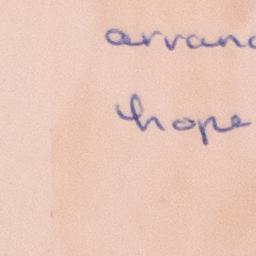 arrang
hope